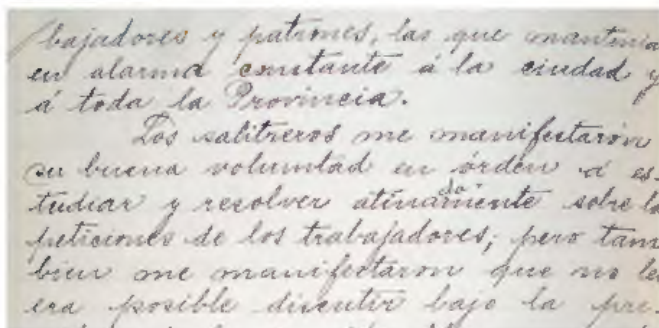 bajadores y patrones, las que mantenía
en alarma constante á la ciudad y
á toda la Provincia.
Los salitreros me manifestarón
su buena voluntad en órden á es-
tudiar y resolver atinadamente sobre la
peticiones de los trabajadores; pero tam
bien me manifestaron que no le
era posible discutir bajo la pre-